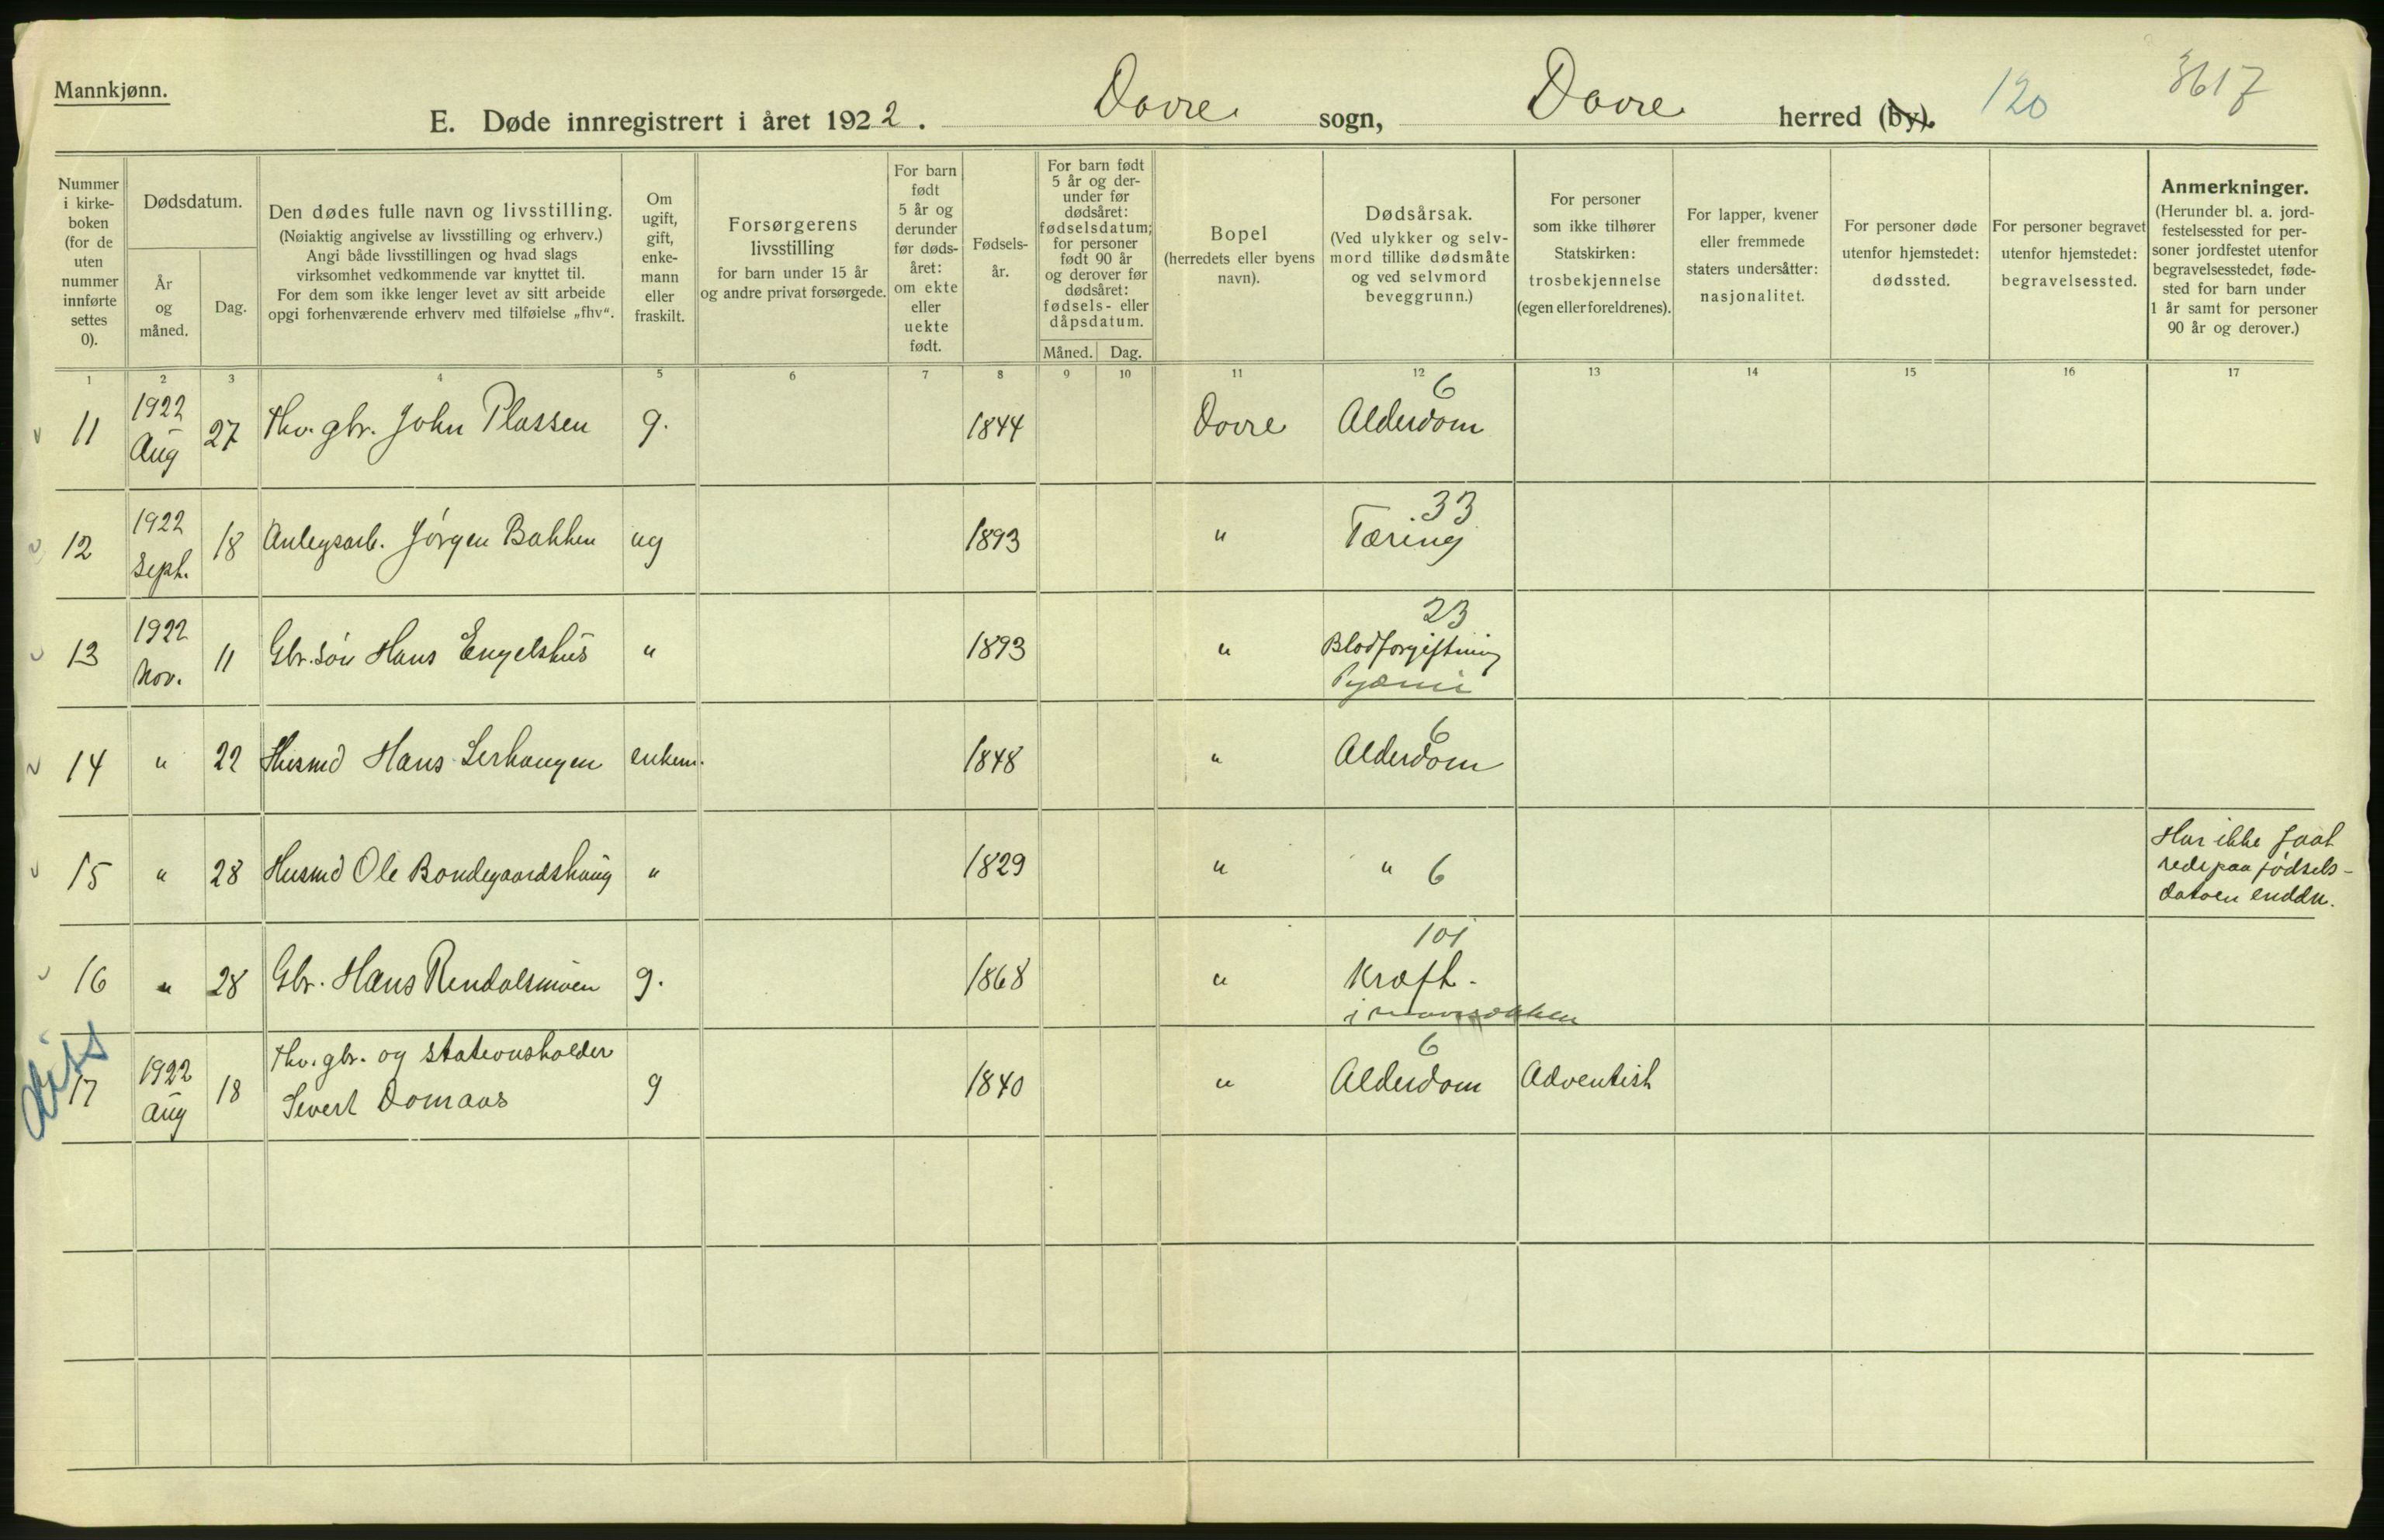 Mannkjønn.
E. Døde innregistrert i året 1922. Dovre sogn, Dovre herred (by). 120 3617
Nummer
i kirke-
boken
(for de
uten
nummer
innførte
settes
0).
Dødsdatum.
År
og
måned.
Dag.
Den dødes fulle navn og livsstilling.
(Nøiaktig angivelse av livsstilling og erhverv.)
Angi både livsstillingen og hvad slags
virksomhet vedkommende var knyttet til.
For dem som ikke lenger levet av sitt arbeide
opgi forhenværende erhverv med tilføielse „fhv“.
Om
ugift,
gift,
enke-
mann
eller
fraskilt.
Forsørgerens
livsstilling
for barn under 15 år
og andre privat forsørgede.
For barn
født
5 år og
derunder
før døds-
året:
om ekte
eller
uekte
født.
Fødsels-
år.
For barn født
5 år og der-
under før
dødsåret:
fødselsdatum;
for personer
født 90 år
og derover før
dødsåret:
fødsels- eller
dåpsdatum.
Måned. Dag.
Bopel
(herredets eller byens
navn).
Dødsårsak.
(Ved ulykker og selv-
mord tillike dødsmåte
og ved selvmord
beveggrunn.)
For personer
som ikke tilhører
Statskirken:
trosbekjennelse
(egen eller foreldrenes).
For lapper, kvener
eller fremmede
staters undersåtter:
nasjonalitet.
For personer døde
utenfor hjemstedet:
dødssted.
For personer begravet
utenfor hjemstedet:
begravelsessted.
Anmerkninger.
(Herunder bl. a. jord-
festelsessted for per-
soner jordfestet utenfor
begravelsesstedet, føde-
sted for barn under
1 år samt for personer
90 år og derover.)
1 2 3 4 5 6 7 8 9 10 11 12 13 14 15 16 17
11 1922 Aug 27 Fhv. gbr. John Plassen g. 1844 Dovre 6 Alderdom
12 1922 Sept. 18 Anlegsarb. Jørgen Bakken ug 1893 " 33 Tæring
13 1922 Nov. 11 Gbr. søn Hans Engelshus " 1893 " 23 Blodforgiftning
Pyæmi
14 " 22 Husmd Hans Lerhaugen enkem. 1848 " 6 Alderdom
15 " 28 Husmd Ole Bondegaardshaug " 1829 " " 6
Har ikke faat
rede paa fødsels-
datoen enddu.
16 " 28 Gbr. Hans Rendalsmoen g. 1868 " 101 Kræft.
i mavesækken
17 1922 Aug 18 Fhv. gbr. og stationsholder
Sivert Domaas g 1840 " 6 Alderdom Adventist